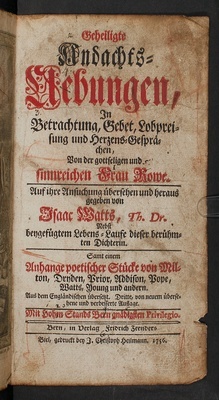 Geheiligte
Andachts-
Uebungen,
In
Betrachtung, Gebet, Lobprei-
sung und Herzens-Gesprä-
chen,
Von der gottseligen und
sinnreichen Frau Rowe.
Auf ihre Ansuchung übersehen und heraus
gegeben von
Isaac Watts, Th. Dr.
Nebst
beygefügtem Lebens-Laufe dieser berühm-
ten Dichterin.
Samt einem
Anhange poetischer Stücke von Mil-
ton, Dryden, Prior, Addison, Pope,
Watts, Young und andern.
Aus dem Engländischen übersetzt. Dritte, von neuem überse-
hene und verbesserte Auflage.
Mit Hohen Stands Bern gnädigstem Privilegio.
Bern, in Verlag
Biel, gedruckt bey J. Christoph Heilmann, 1756.